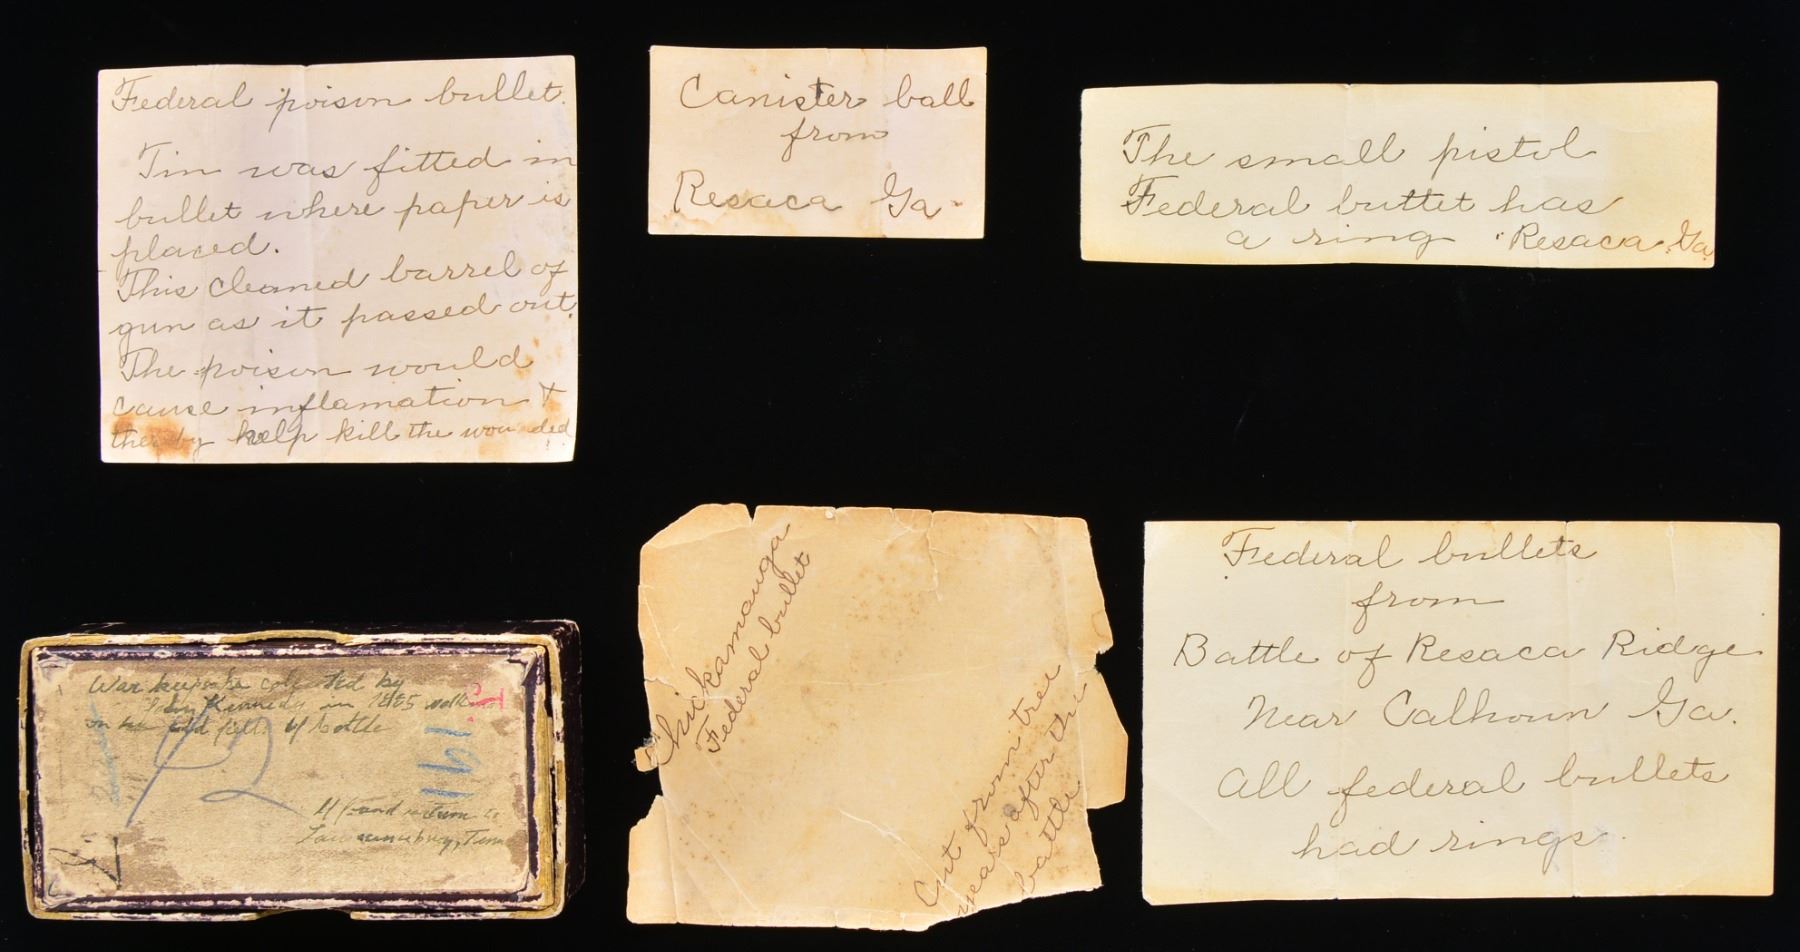 Federal poison bullet.
Tin was fitted in
bullet where paper is
placed.
This cleaned barrel of
gun as it passed out.
The poison would
cause inflamation &
thereby help kill the wounded
Canister ball
from
Resaca Ga.
The small pistol
Federal buttet has
a ring. Resaca. Ga.
War keepsake collected by
Kennedy in 1885 walking
on old field of battle
If found return to
Lawrenceburg, Tenn
1.91
Chickamauga
Federal bullet
Cut from tree
years after the
battle
Federal bullets
from
Battle of Resaca Ridge
Near Calhoun Ga.
All federal bullets
had rings.